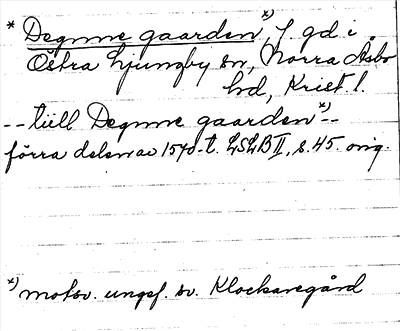 * Degnne gaarden *), f. gd i
Östra Ljungby sn, Norra Åsbo
hd, Krist. l.
-- till Degnne gaarden *) --
förra delen av 1570-t. LSLB II, s. 45. orig.
*) motsv. ungef. sv. Klockaregård